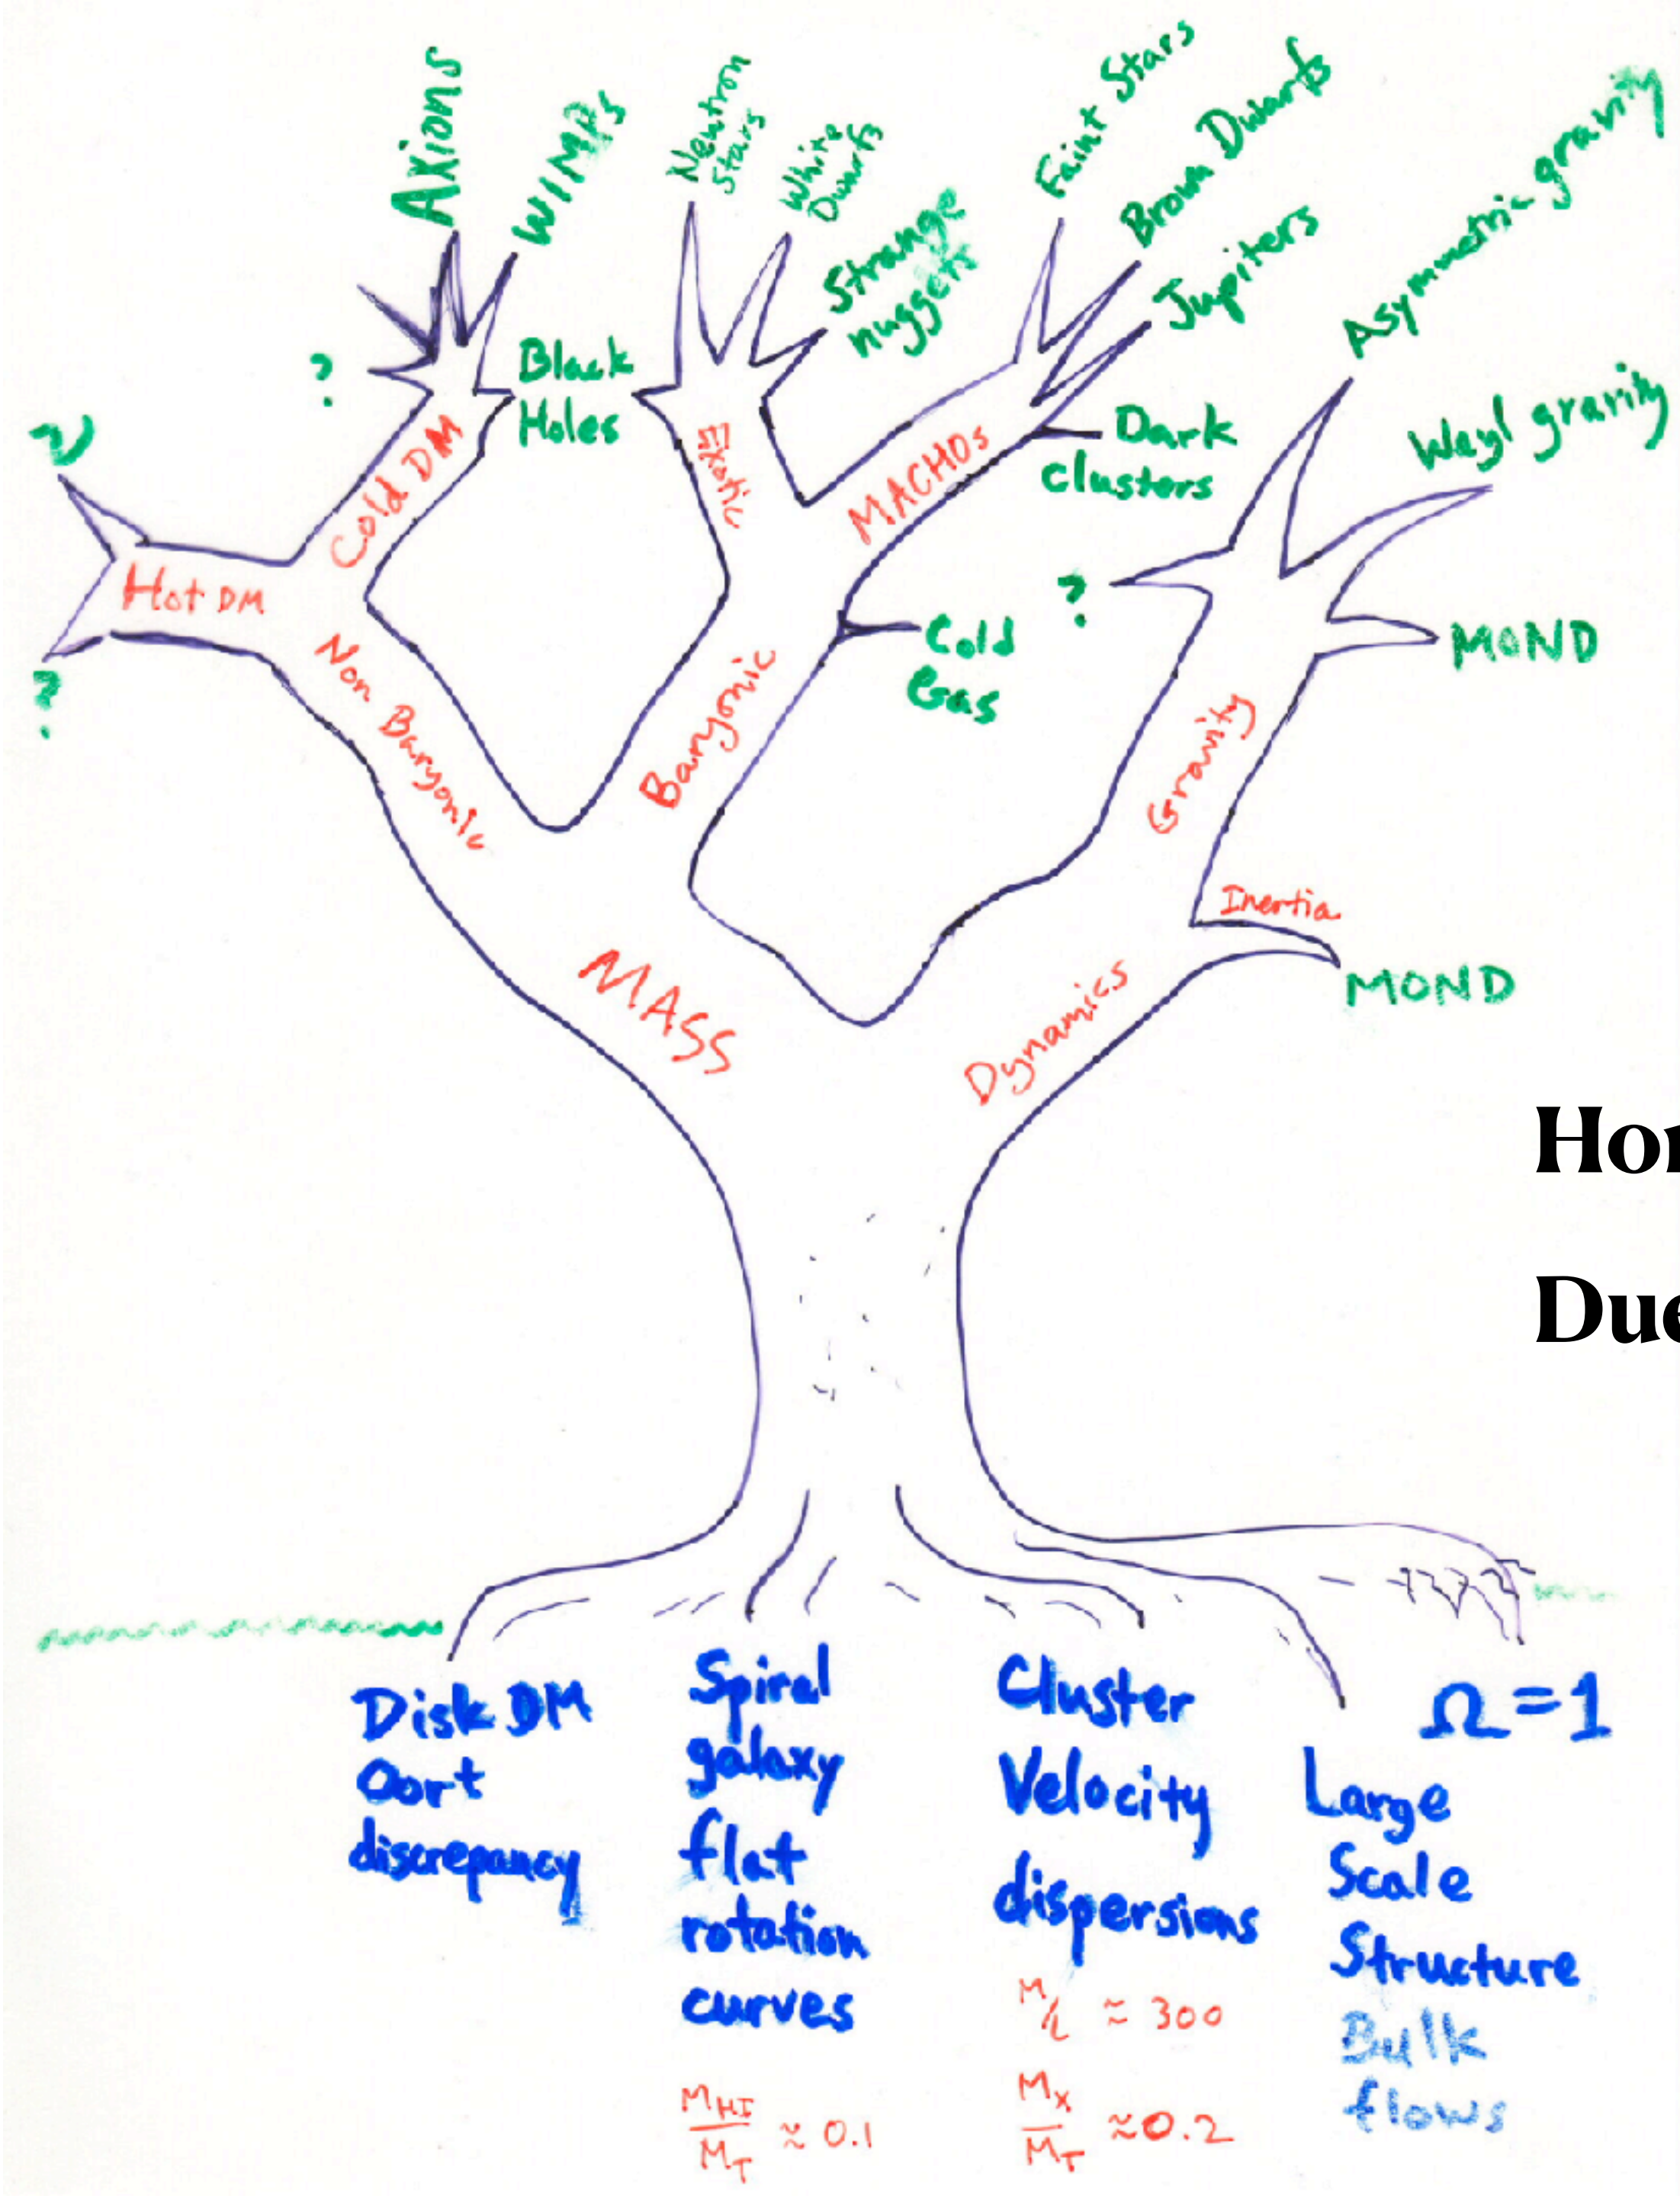 Axions
WIMPs
Neutron
Stars
White
Dwarfs
Strange
nuggets
Faint Stars
Brown Dwarfs
Jupiters
Asymmetric gravity
Weyl gravity
?
Black
Holes
Dark
clusters
ν
Cold DM
Exotic
MACHOs
Hot DM
?
?
Cold
Gas
MOND
Non Baryonic
Baryonic
Gravity
Inertia
MOND
MASS
Dynamics
Hor
Due
Disk DM
Oort
discrepancy
Spiral
galaxy
flat
rotation
curves
M_HI/M_T ≈ 0.1
Cluster
Velocity
dispersions
M/L ≈ 300
M_X/M_T ≈ 0.2
Ω = 1
Large
Scale
Structure
Bulk
flows